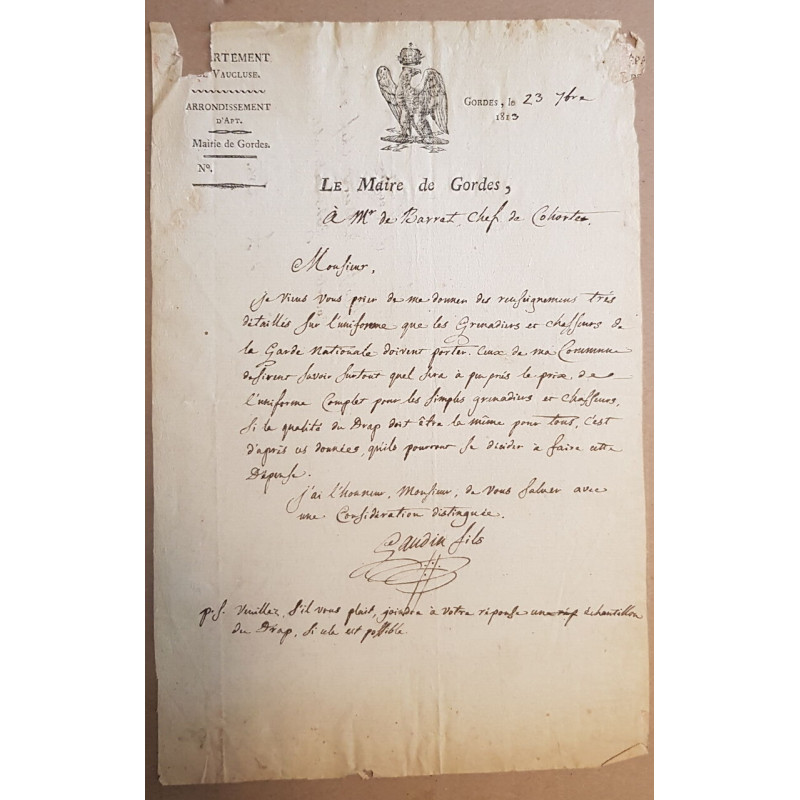 ARTEMENT
VAUCLUSE.
ARRONDISSEMENT
D'APT.
Mairie de Gordes.
No.
GORDES, le 23 7bre
1813
LE Maire de Gordes,
À Mr de Barret, Chef de Cohorte,
Monsieur,
Je viens vous prier de me donner des renseignemens très
détaillés sur l'uniforme que les Grenadiers et chasseurs de
la Garde Nationale doivent porter. Ceux de ma Commune
desirent savoir surtout quel sera à peu près le prix de
l'uniforme Complet pour les simples grenadiers et chasseurs,
si la qualité du Drap doit être la même pour tous, c'est
d'après ces données, qu'ils pourront se décider à faire cette
Dépense.
J'ai l'honneur, Monsieur, de vous saluer avec
une Considération distinguée.
Gaudin fils
p.s. Veuillez, s'il vous plait, joindre à votre réponse un échantillon
du Drap, si cela est possible.